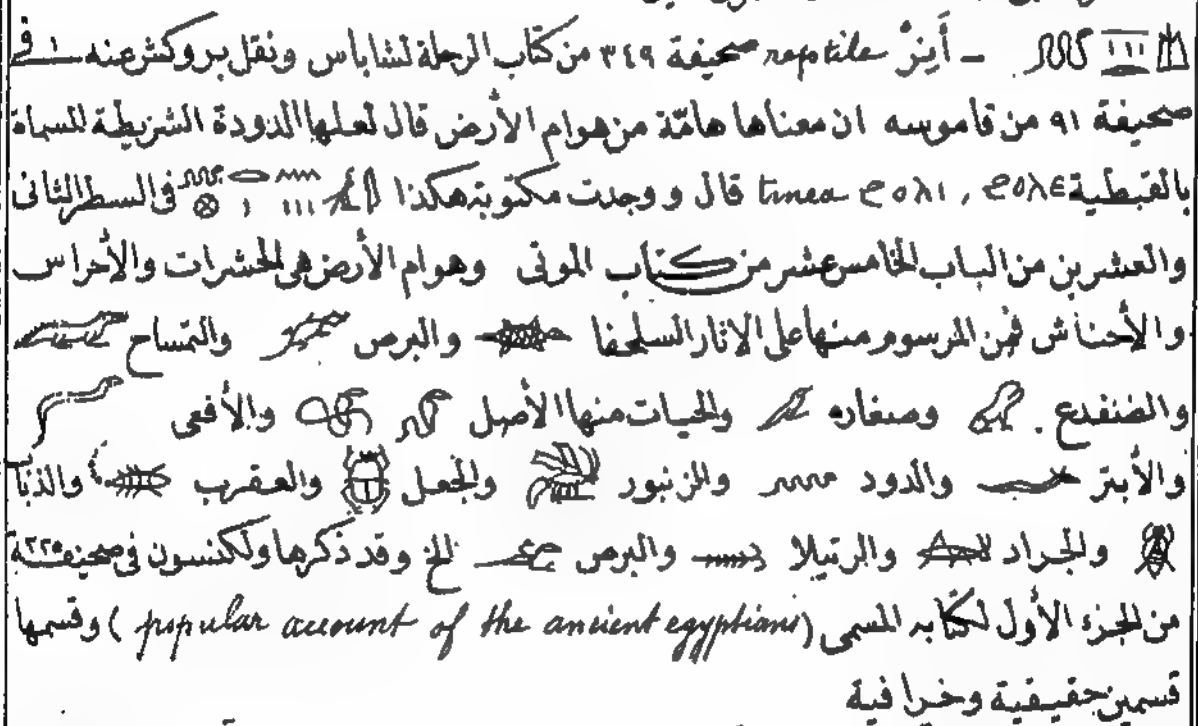 ـ أَيِنرُ reptile صحيفة ٣٤٩ من كتاب الرحلة لشاباس ونقل بروكش عنه فى
صحيفة ٩١ من قاموسه ان معناها هامّة من هوام الأرض قال لعلها الدودة الشريطية المسماة
بالقبطية ϩⲟⲗⲉ , ϩⲟⲗⲓ tinea قال ووجدت مكتوبة هكذا فى السطر الثانى
والعشرين من الباب الخامس عشر من كتاب الموتى وهوام الأرض هى الحشرات والأحراس
والأحناش فمن المرسوم منها على الاثار السلحفا والبرص والتمساح
والضفدع . وصغاره والحيات منها الأصل والأفعى
والأبتر والدود والزنبور والجعل والعقرب والذباب
والجراد والرتيلا والبرص الخ وقد ذكرها ولكنسون فى صحيفة ٢٢٥
من الجزء الأول لكتابه المسمى (popular account of the ancient egyptians) وقسمها
قسمين حقيقية وخرافية